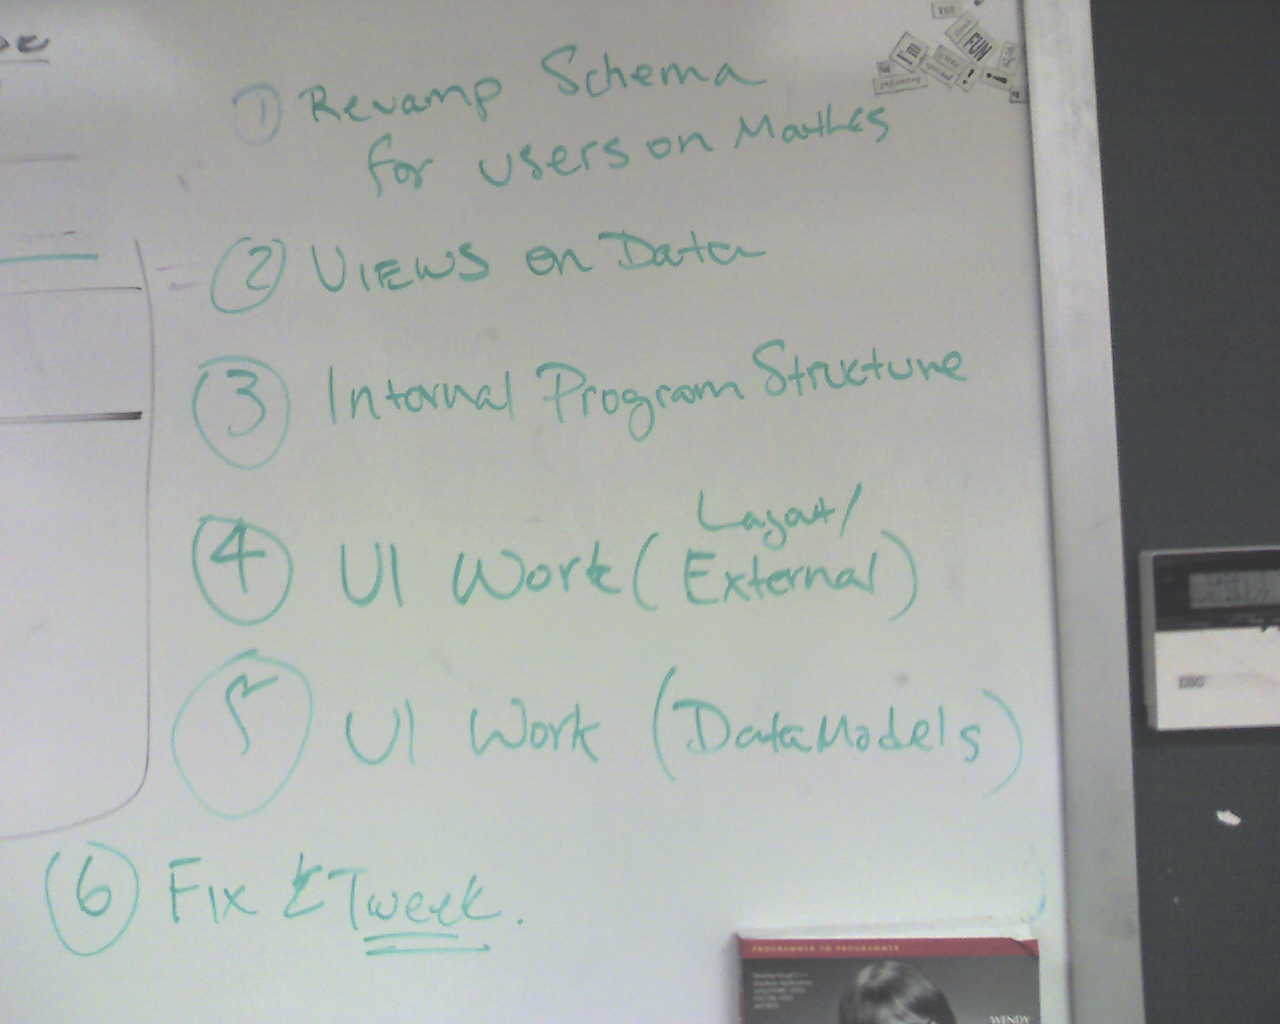 ① Revamp Schema
for users on Mathes
② VIEWS on Data
③ Internal Program Structure
④ UI Work (Layout/
External)
⑤ UI Work (DataModels)
⑥ Fix & Tweek.
I'm
FUN
!
PROGRAMMER TO PROGRAMMER
WENDY